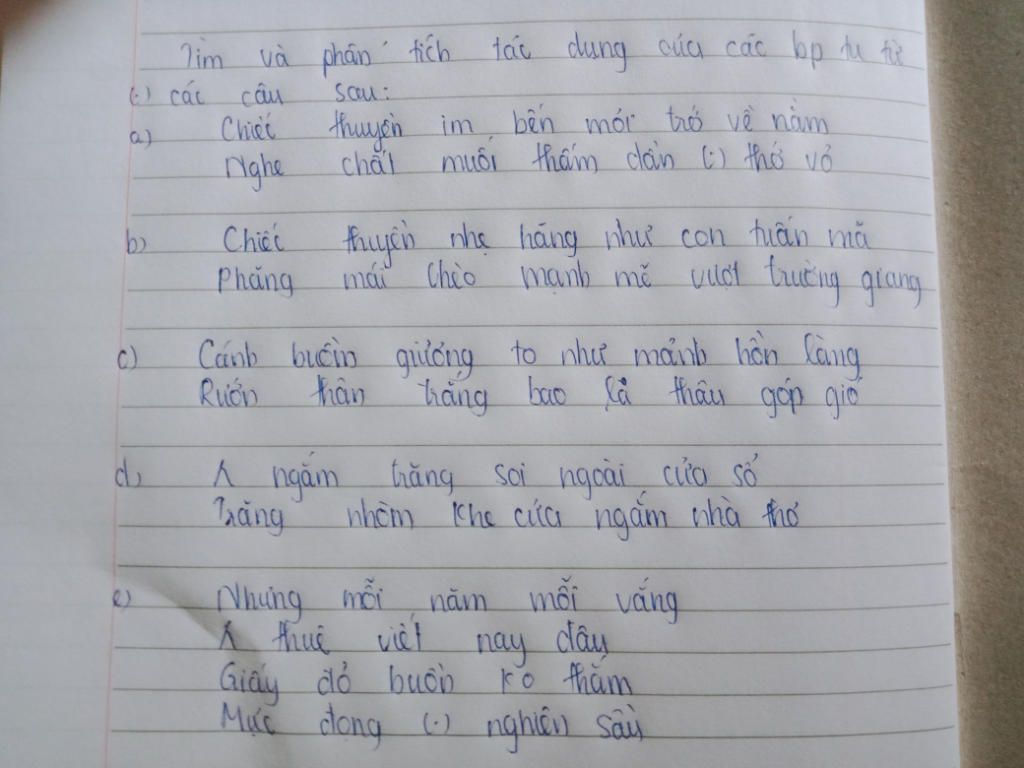 Tìm và phân tích tác dụng của các bp tu từ
(.) các câu sau:
a) Chiếc thuyền im bến mỏi trở về nằm
Nghe chất muối thấm dần (.) thớ vỏ
b) Chiếc thuyền nhẹ hăng như con tuấn mã
Phăng mái chèo mạnh mẽ vượt trường giang
c) Cánh buồm giương to như mảnh hồn làng
Rướn thân trắng bao la thâu góp gió
d) λ ngắm trăng soi ngoài cửa sổ
Trăng nhòm khe cửa ngắm nhà thơ
e) Nhưng mỗi năm mỗi vắng
λ thuê viết nay đâu
Giấy đỏ buồn ko thắm
Mực đọng (.) nghiên sầu